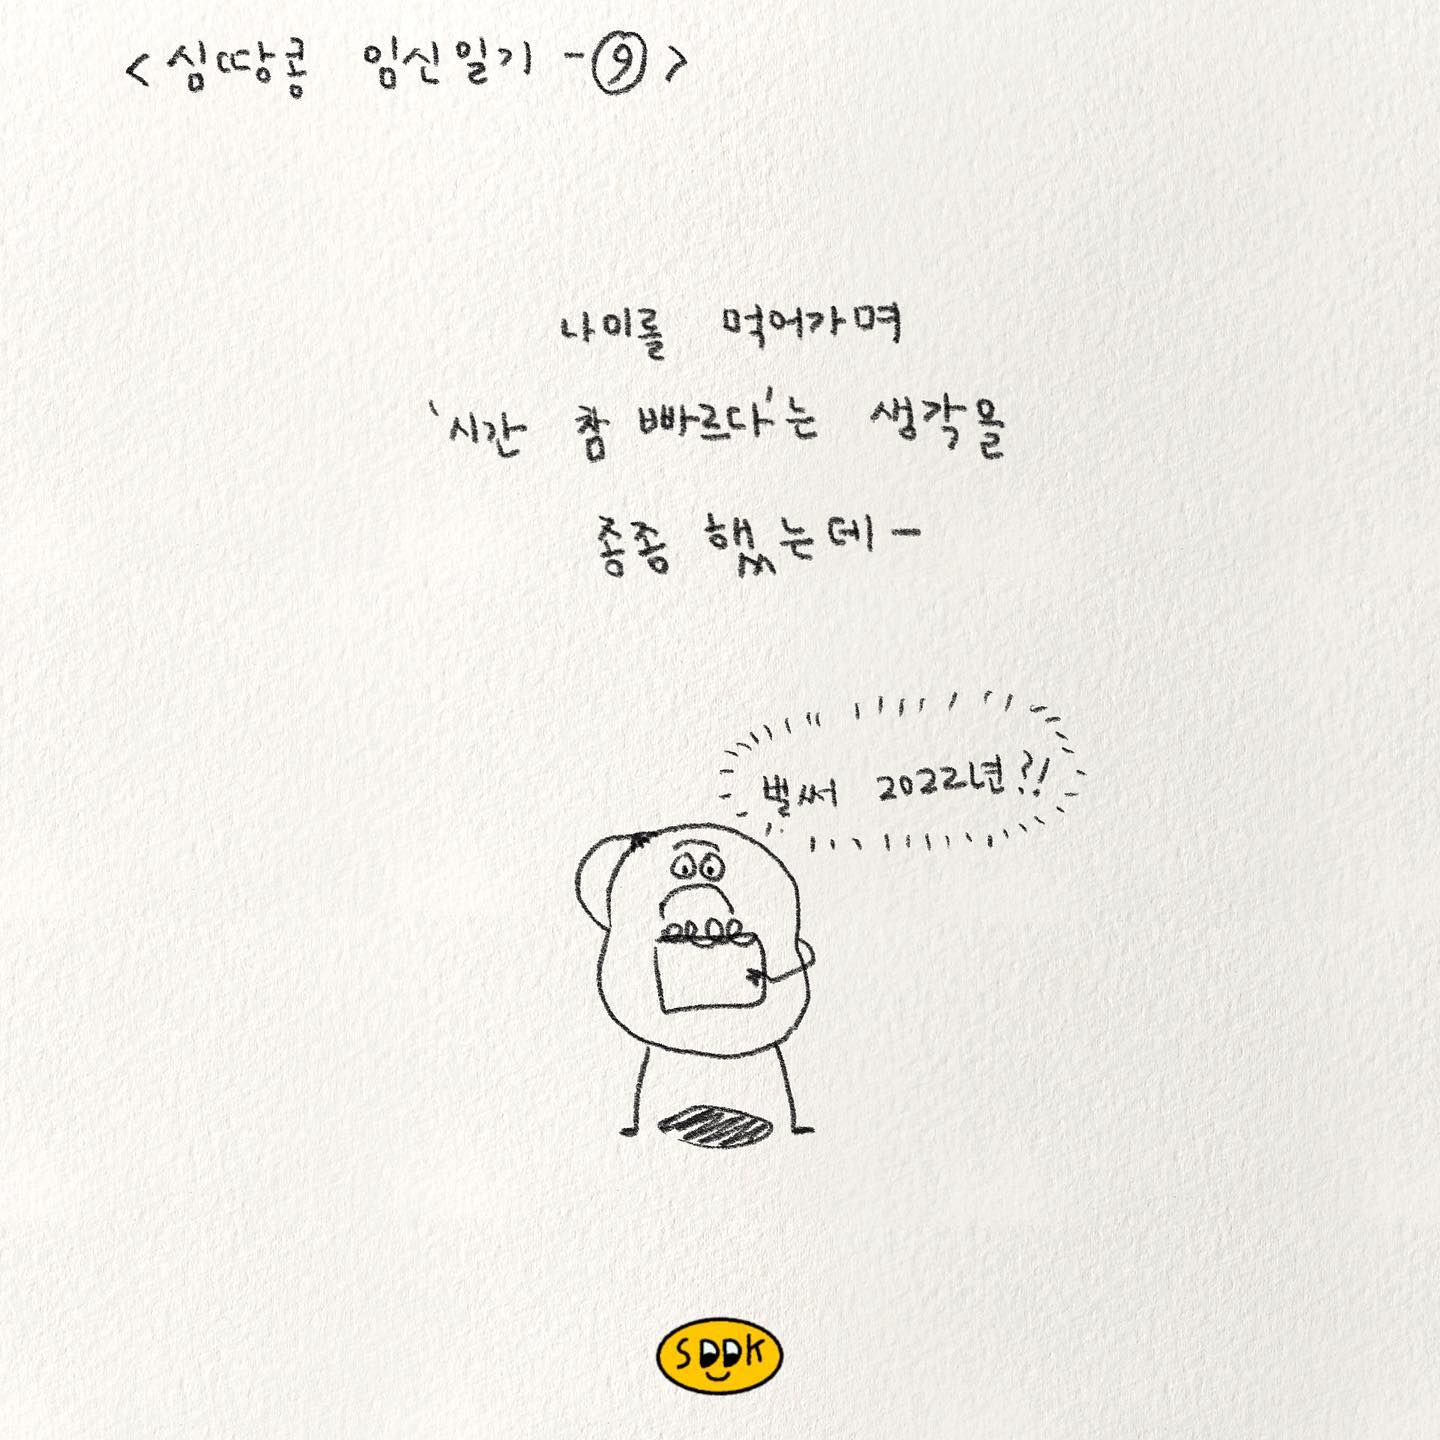 < 심땅콩 임신일기 - ⑨ >
나이를 먹어가며
'시간 참 빠르다'는 생각을
종종 했는데 -
벌써 2022년?!
SDDK